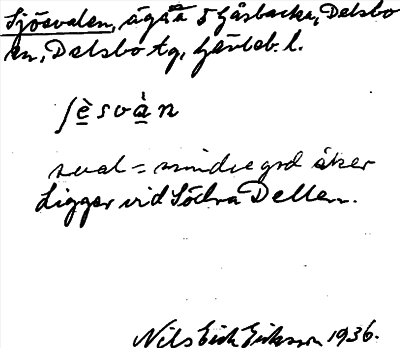 Sjösvalen, ägor å 5 Gåsbacka, Delsbo
sn, Delsbo tg, Gävleb. l.
ʃè̲svà̲n
sval = mindre god åker
Ligger vid Södra Dellen.
Nils Erik Eriksson 1936.